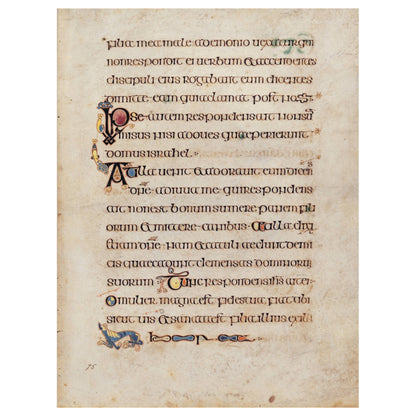 filia mea male ademonio uexatur qui
non respondit ei uerbum et accendentes
discipuli eius rogabant eum dicentes
dimitte eam quia clamat post nos
Ipse autem respondens ait non sum
misus nisi ad oues quae perierunt
domus israhel
At illa uenit et adorauit eum dicens
dne adiuua me qui respondens
ait non est bonum sumere panem fili
orum et mittere canibus At illa dixit
etiam dne nam et catuli aedunt de mi
cis quae cadunt de mensas dominorum
suorum Tunc respondens ihs ait ei
o mulier magna est fides tua fiat tibi
sicut uis et sanata est filia illius ex illa
hora
75